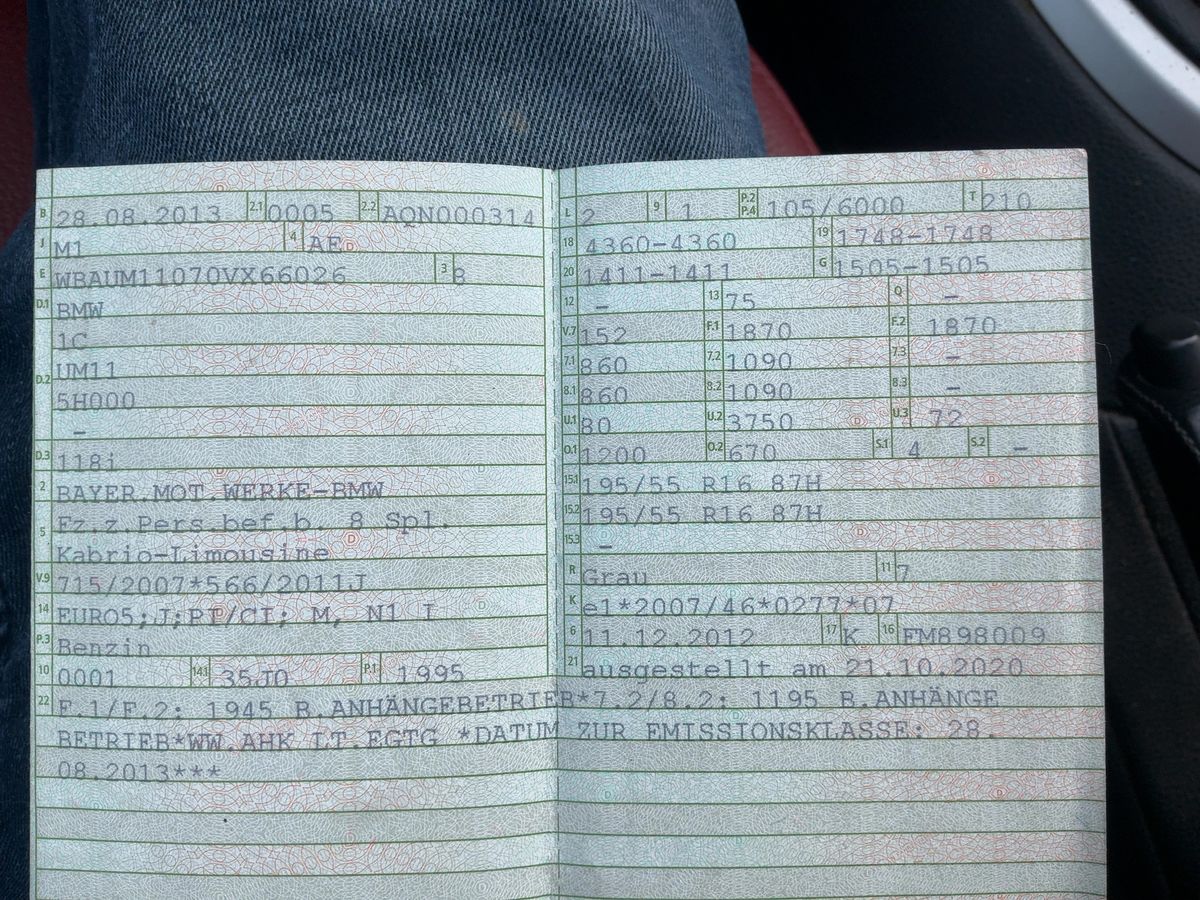 B 28.08.2013 2.1 0005 2.2 AQN000314
J M1 4 AE
E WBAUM11070VX66026 3 8
D.1 BMW
1C
D.2 UM11
5H000
-
D.3 118i
2 BAYER.MOT.WERKE-BMW
5 Fz.z.Pers.bef.b. 8 Spl.
Kabrio-Limousine
V.9 715/2007*566/2011J
14 EURO5;J;PI/CI; M, N1 I
P.3 Benzin
10 0001 14.1 35J0 P.1 1995
L 2 9 1 P.2 P.4 105/6000 T 210
18 4360-4360 19 1748-1748
20 1411-1411 G 1505-1505
12 - 13 75 Q -
V.7 152 F.1 1870 F.2 1870
7.1 860 7.2 1090 7.3 -
8.1 860 8.2 1090 8.3 -
U.1 80 U.2 3750 U.3 72
O.1 1200 O.2 670 S.1 4 S.2 -
15.1 195/55 R16 87H
15.2 195/55 R16 87H
15.3 -
R Grau 11 7
K e1*2007/46*0277*07
6 11.12.2012 17 K 16 FM898009
21 ausgestellt am 21.10.2020
22 F.1/F.2: 1945 B.ANHÄNGEBETRIEB*7.2/8.2: 1195 B.ANHÄNGE
BETRIEB*WW.AHK LT.EGTG *DATUM ZUR EMISSIONSKLASSE: 28.
08.2013***